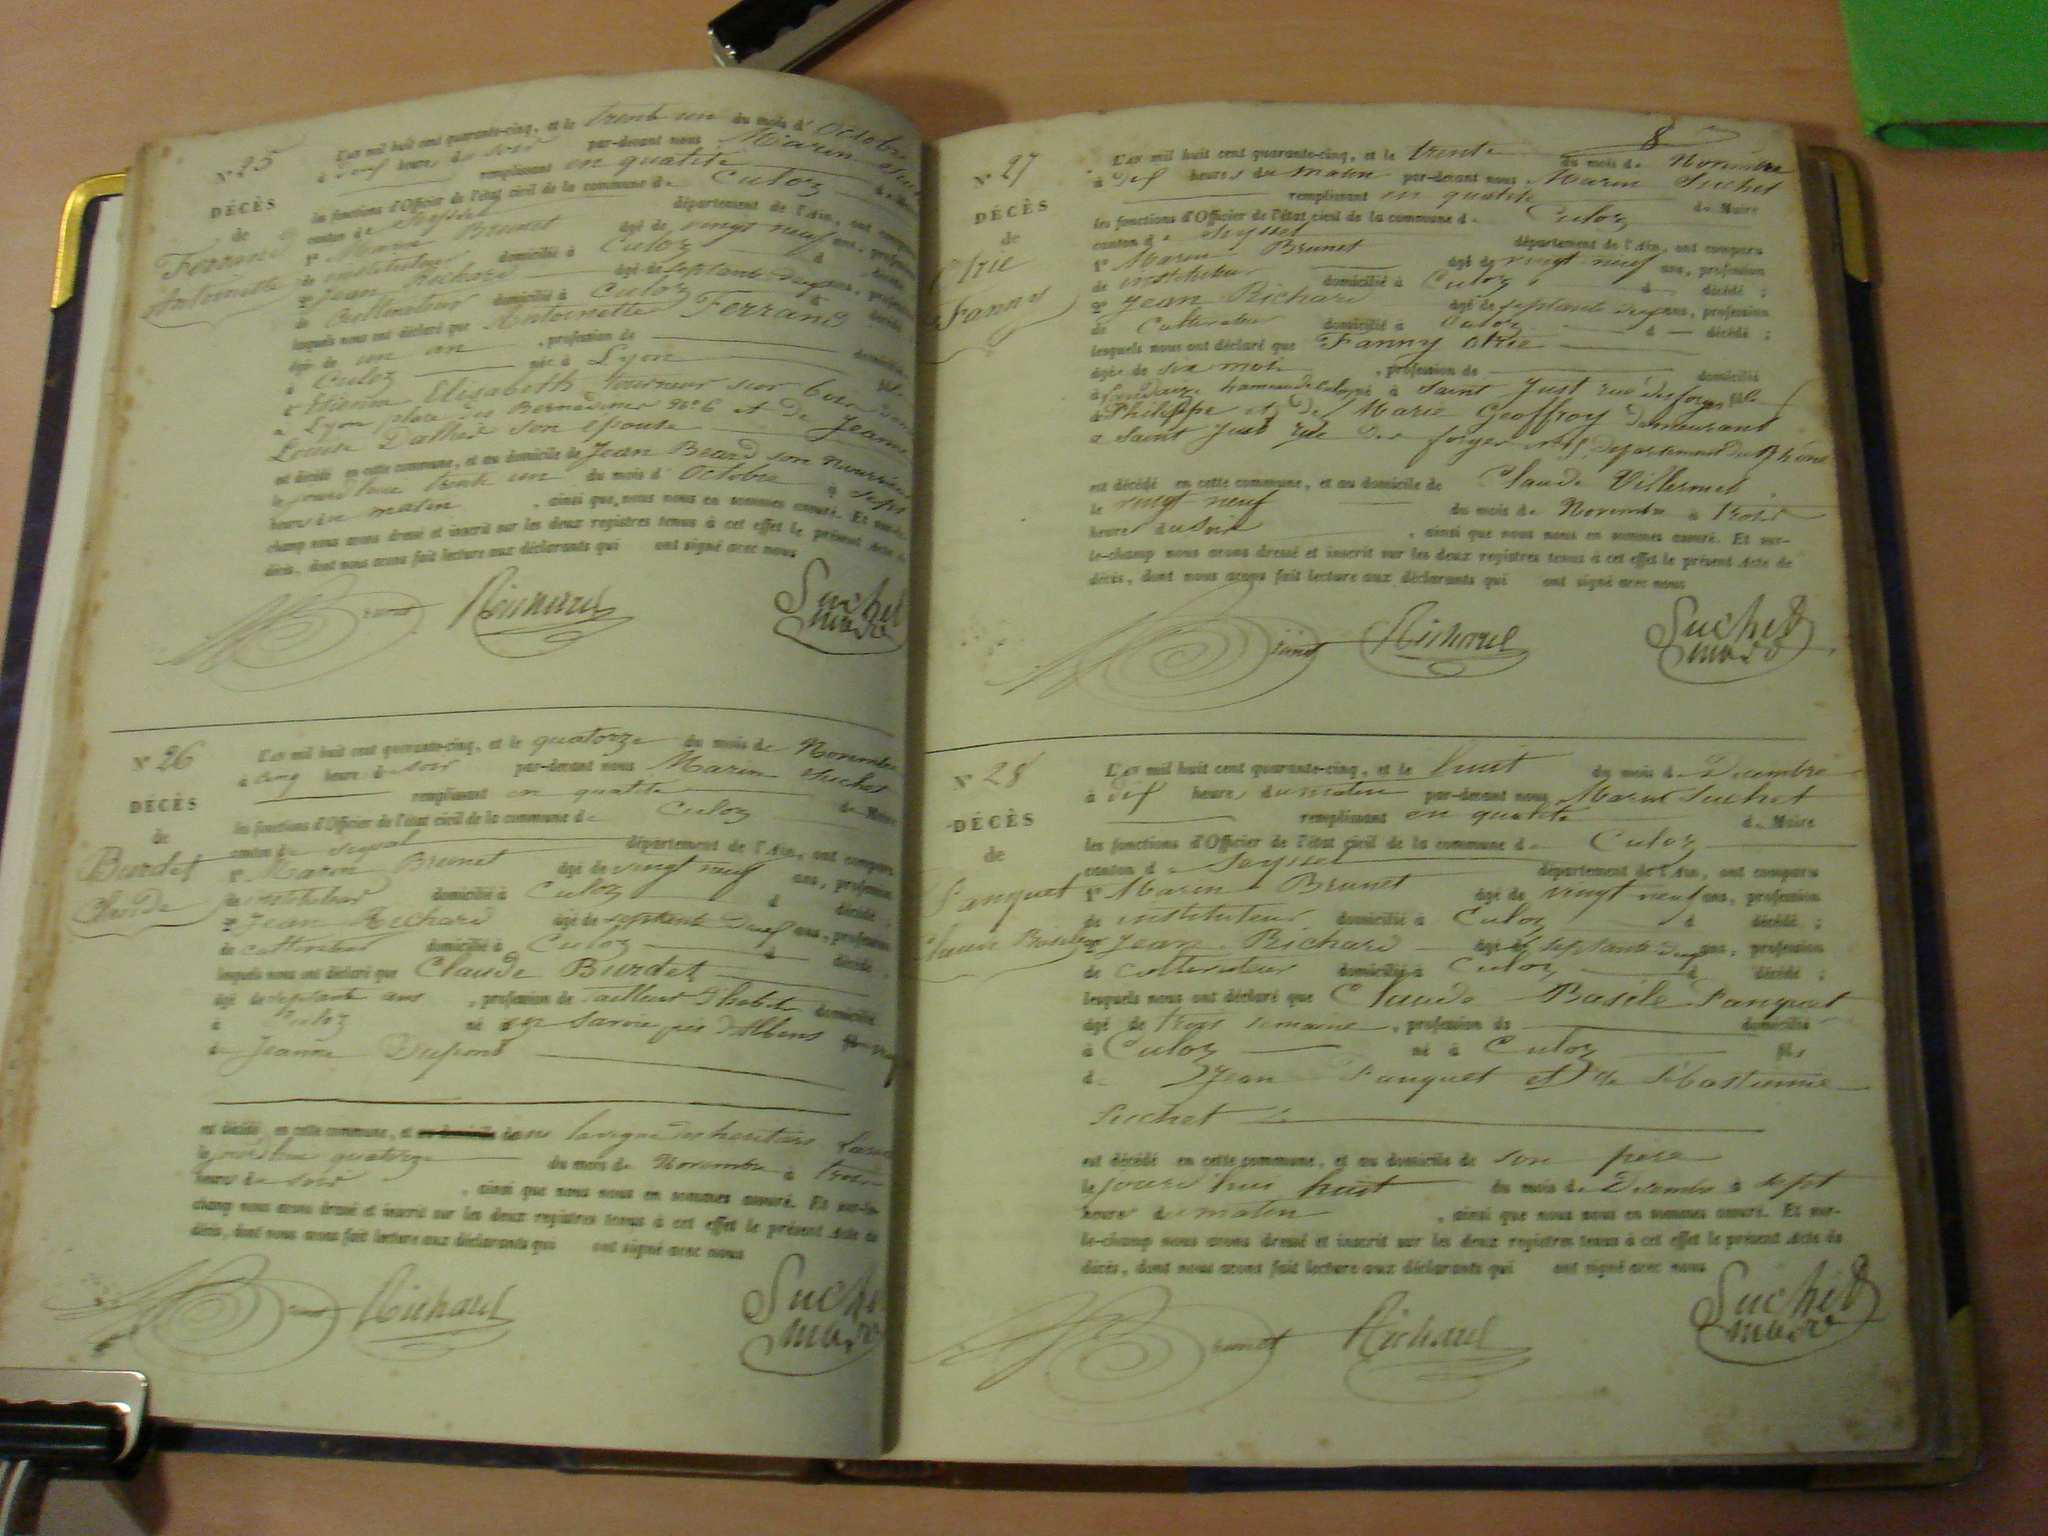 N° 25
DÉCÈS
de
Ferrand
Antoinette
L'an mil huit cent quarante-cinq, et le trente un du mois d' Octobre
à heures du soir par-devant nous Marin
remplissant en qualité de Maire
les fonctions d'Officier de l'état civil de la commune de Culoz
canton de Seyssel département de l'Ain, ont comparu
1° Marin Brunet âgé de vingt neuf ans, profession
de instituteur domicilié à Culoz d décédé
2° Jean Richard âgé de septante ans, profession
de Cultivateur domicilié à Culoz d décédé
lesquels nous ont déclaré que Antoinette Ferrand
âgée de un an , profession de domiciliée
à Culoz née à Lyon fille
d' Etienne Elisabeth tourneur sur bois
à Lyon place des Bernardines N° 6 et de Jeanne
Louise son epouse
est décédé en cette commune, et au domicile de Jean Beard son
le jourd'hui trente un du mois d' Octobre à sept
heures du matin , ainsi que nous nous en sommes assuré. Et sur-le-
champ nous avons dressé et inscrit sur les deux registres tenus à cet effet le présent Acte de
décès, dont nous avons fait lecture aux déclarants qui ont signé avec nous
Brunet Richard Suchet
maire
N° 26
DÉCÈS
de
Burdet
Claude
L'an mil huit cent quarante-cinq, et le quatorze du mois de Novembre
à cinq heures du soir par-devant nous Marin Suchet
remplissant en qualité de Maire
les fonctions d'Officier de l'état civil de la commune de Culoz
canton de département de l'Ain, ont comparu
1° Marin Brunet âgé de vingt neuf ans, profession
de instituteur domicilié à Culoz d décédé ;
2° Jean Richard âgé de septante ans, profession
de cultivateur domicilié à Culoz d décédé ;
lesquels nous ont déclaré que Claude Burdet
âgé de septante ans , profession de tailleur d'habits domicilié
à Culoz né en Savoie près d'Albens
de Jeanne Dupont
est décédé en cette commune, et dans la vigne des heritiers
le jourd'hui quatorze du mois de Novembre à trois
heures du soir , ainsi que nous nous en sommes assuré. Et sur-le-
champ nous avons dressé et inscrit sur les deux registres tenus à cet effet le présent Acte de
décès, dont nous avons fait lecture aux déclarants qui ont signé avec nous
Brunet Richard Suchet
maire
8
N° 27
DÉCÈS
de
Fanny
L'an mil huit cent quarante-cinq, et le trente du mois de Novembre
à heures du matin par-devant nous Marin Suchet
remplissant en qualité de Maire
les fonctions d'Officier de l'état civil de la commune de Culoz
canton de Seyssel département de l'Ain, ont comparu
1° Marin Brunet âgé de vingt neuf ans, profession
de instituteur domicilié à Culoz d décédé ;
2° Jean Richard âgé de septante ans, profession
de Cultivateur domicilié à Culoz d décédé ;
lesquels nous ont déclaré que Fanny
âgée de six mois , profession de domicilié
à hameau de Culoz né à Saint Just rue des forges fille
de Philippe et de Marie Geoffroy demeurant
à Saint Just rue des forges département du Rhône
est décédé en cette commune, et au domicile de Claude Villermet
le vingt neuf du mois de Novembre à trois
heures du soir , ainsi que nous nous en sommes assuré. Et sur-
le-champ nous avons dressé et inscrit sur les deux registres tenus à cet effet le présent Acte de
décès, dont nous avons fait lecture aux déclarants qui ont signé avec nous
Brunet Richard Suchet
maire
N° 28
DÉCÈS
de
Panquet
Claude Basile
L'an mil huit cent quarante-cinq, et le huit du mois de Decembre
à heures du matin par-devant nous Marin Suchet
remplissant en qualité de Maire
les fonctions d'Officier de l'état civil de la commune de Culoz
canton de Seyssel département de l'Ain, ont comparu
1° Marin Brunet âgé de vingt neuf ans, profession
de instituteur domicilié à Culoz d décédé ;
2° Jean Richard âgé de septante ans, profession
de Cultivateur domicilié à Culoz d décédé ;
lesquels nous ont déclaré que Claude Basile Panquet
âgé de trois semaine , profession de domicilié
à Culoz né à Culoz fils
de Jean Panquet et de Sébastienne
Suchet
est décédé en cette commune, et au domicile de son pere
le jourd'hui huit du mois de Decembre à sept
heures du matin , ainsi que nous nous en sommes assuré. Et sur-
le-champ nous avons dressé et inscrit sur les deux registres tenus à cet effet le présent Acte de
décès, dont nous avons fait lecture aux déclarants qui ont signé avec nous
Brunet Richard Suchet
maire